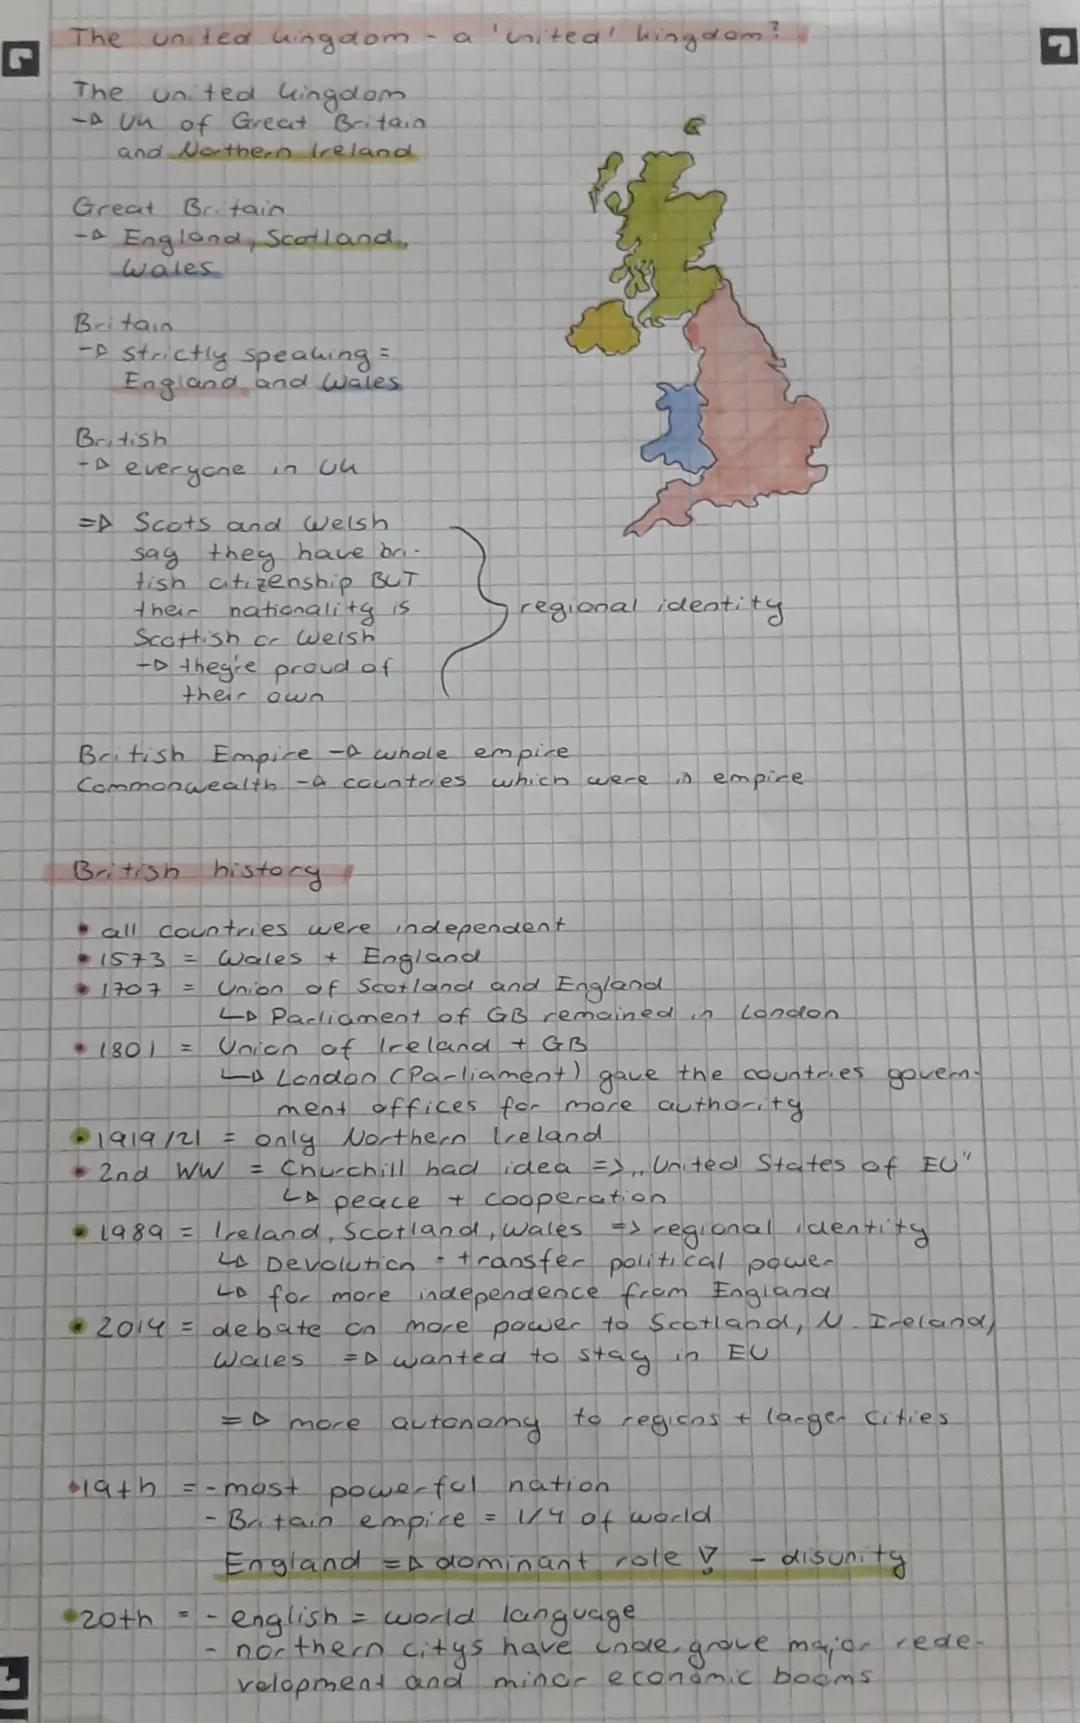 The united kingdom - a 'united' kingdom?
The united kingdom
→ UK of Great Britain
and Northern Ireland
Great Britain
→ England, Scotland,
Wales
Britain
→ strictly speaking =
England and Wales
British
→ everyone in UK
⇒ Scots and Welsh
say they have bri-
tish citizenship BUT
their nationality is
Scottish or Welsh
→ they're proud of
their own
regional identity
British Empire → whole empire
Commonwealth → countries which were in empire
British history
• all countries were independent
• 1573 = Wales + England
• 1707 = Union of Scotland and England
↳ Parliament of GB remained in London
• 1801 = Union of Ireland + GB
↳ London (Parliament) gave the countries govern-
ment offices for more authority
• 1919/21 = only Northern Ireland
• 2nd WW = Churchill had idea => „United States of EU"
↳ peace + cooperation
• 1989 = Ireland, Scotland, Wales => regional identity
↳ Devolution - transfer political power
↳ for more independence from England
• 2014 = debate on more power to Scotland, N. Ireland,
Wales ⇒ wanted to stay in EU
⇒ more autonomy to regions + larger cities
• 19th = - most powerful nation
- Britain empire = 1/4 of world
England ⇒ dominant role ! - disunity
• 20th = - english = world language
- northern citys have undergrove major rede-
velopment and minor economic booms